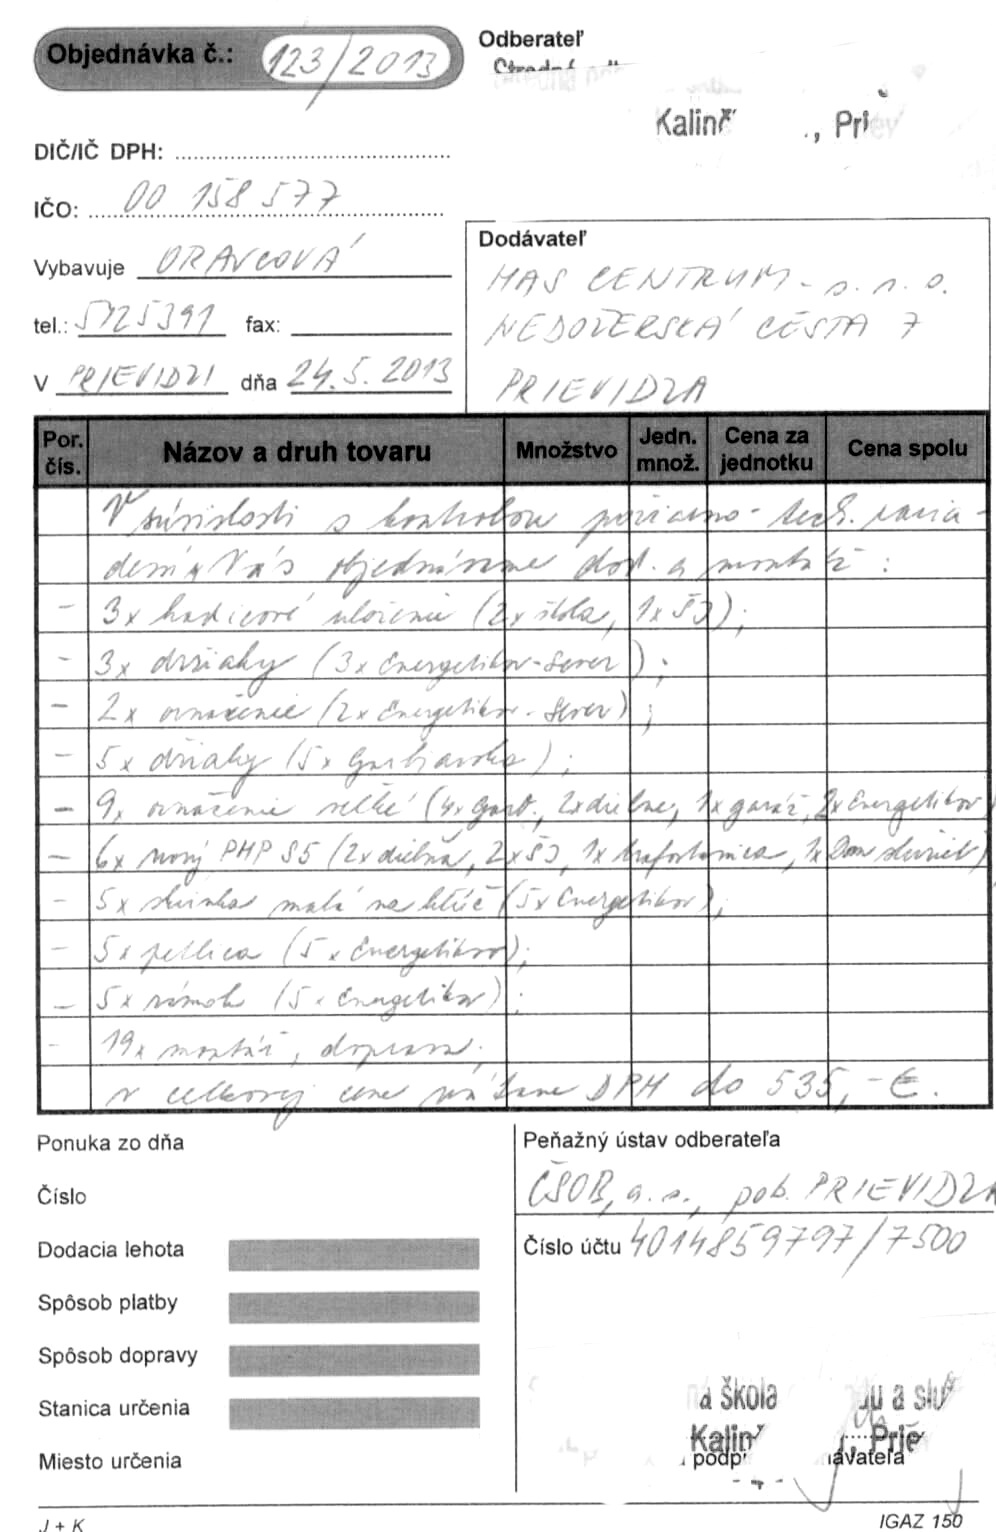 Objednávka č.: 123/2013
Odberateľ
Kalinč , Pri
DIČ/IČ DPH:
IČO: 00 158 577
Vybavuje ORAVCOVÁ
tel.: 5125391 fax:
V PRIEVIDZI dňa 24.5.2013
Dodávateľ
HAS CENTRUM - s.r.o.
NEDOŽERSKÁ CESTA 7
PRIEVIDZA
Por. čís. Názov a druh tovaru Množstvo Jedn. množ. Cena za jednotku Cena spolu
V súvislosti s kontrolou požiarno-tech. zaria-
dení Vás objednávame dod. a montáž :
- 3x hadicové uloženie (2x škola, 1x ŠJ);
- 3x držiaky (3x Energetikov-Sever);
- 2x označenie (2x Energetikov-Sever);
- 5x držiaky (5x Garbiarska);
- 9x označenie veľké (4x Garb., 2x dielne, 1x garáž, 2x Energetikov)
- 6x nový PHP S5 (2x dielňa, 2x ŠJ, 1x trafostanica, 1x Dom služieb)
- 5x skrinka malá na kľúč (5x Energetikov);
- 5x petlica (5x Energetikov);
- 5x rámok (5x Energetikov);
- 19x montáž, doprava;
v celkovej cene vrátane DPH do 535,- €.
Ponuka zo dňa
Číslo
Dodacia lehota
Spôsob platby
Spôsob dopravy
Stanica určenia
Miesto určenia
Peňažný ústav odberateľa
ČSOB, a.s., pob. PRIEVIDZA
Číslo účtu 4014859797/7500
á škola du a slu
Kalinč , Prie
podpi návateľa
J + K
IGAZ 150